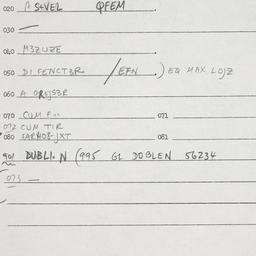 020 STVEL QFEM
030
040 M3ZUZE
050 DI FENCT3R / EFN .) EQ MAX LOJZ
060 A OREJS3R
070 CUM 071
072 CUM TIR
080 081
901 DUBLI. N (995 GL DOBLEN 56234
073 —